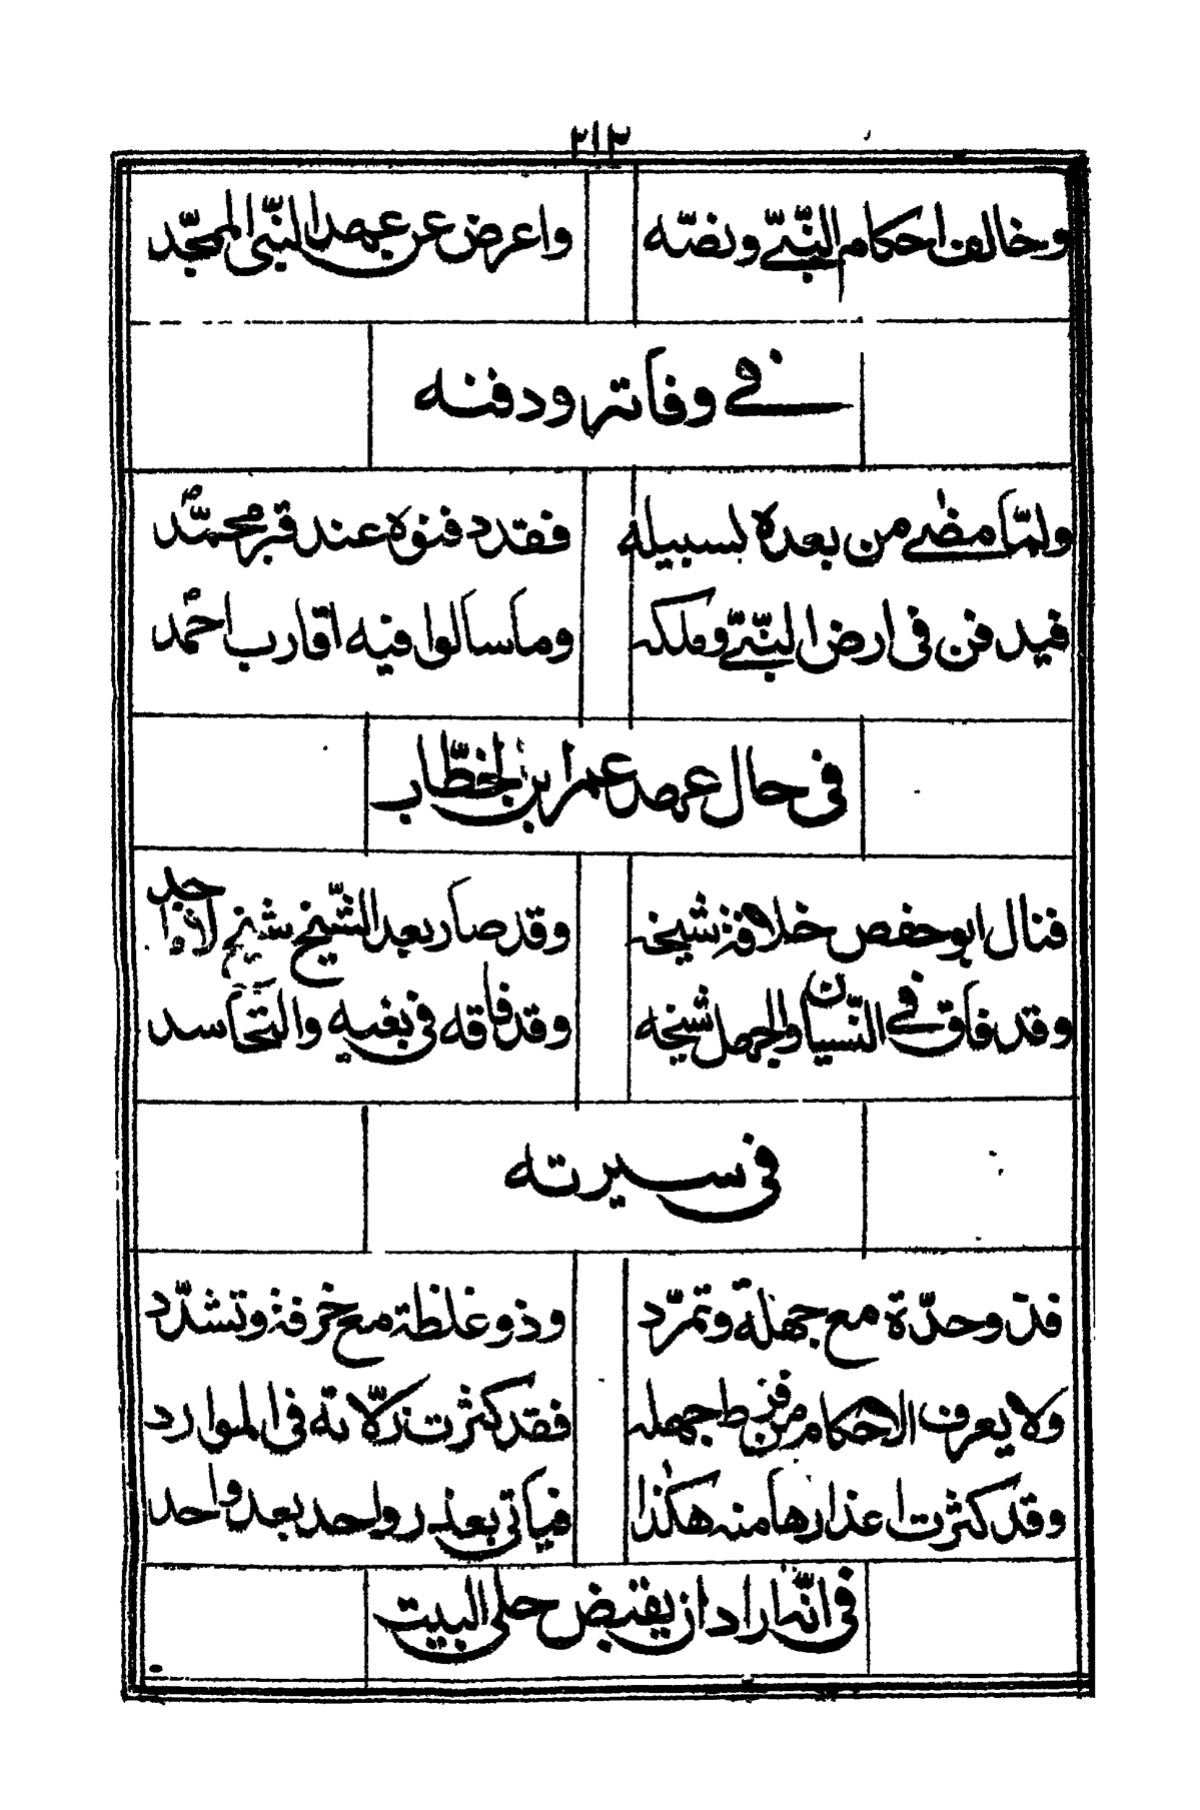 ٢١٣
وخالف احكام النّبيّ ونصّه واعرض عن عهد النّبي الممجّد
في وفاته ودفنه
ولمّا مضى من بعده لسبيله فقد دفنوه عند قبر محمّد
فيدفن في ارض النّبيّ وملكه وما سالوا فيه اقارب احمد
في حال عهد عمر ابن الخطّاب
فنال ابو حفص خلافة شيخه وقد صار بعد الشّيخ شيخ الأواحد
وقد فاق في النّسيان والجهل شيخه وقد فاقه في بغيه والتّحاسد
في سيرته
فذو حدّة مع جهلة وتمرّد وذو غلظة مع خرفة وتشدّد
ولا يعرف الاحكام من فرط جهله فقد كثرت زلّاته في الموارد
وقد كثرت اعذارها منه هكذا فياتي بعذر واحد بعد واحد
في انّه اراد ان يقبض حلي البيت